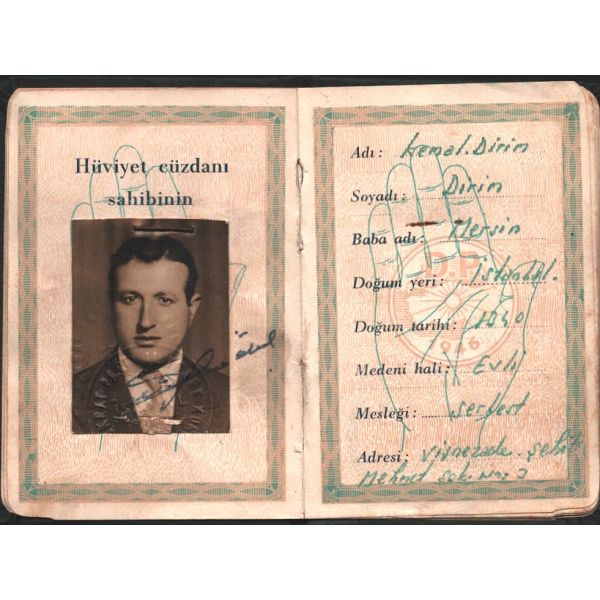 Hüviyet cüzdanı
sahibinin
Adı: Kemal. Dirim
Soyadı: Dirim
Baba adı: Mersin
Doğum yeri: İstanbul.
D.P.
Doğum tarihi: 1340
1946
Medeni hali: Evli
Mesleği: serbest
Adresi: Vişnezade. Şehit
Mehmet sok. No: 3